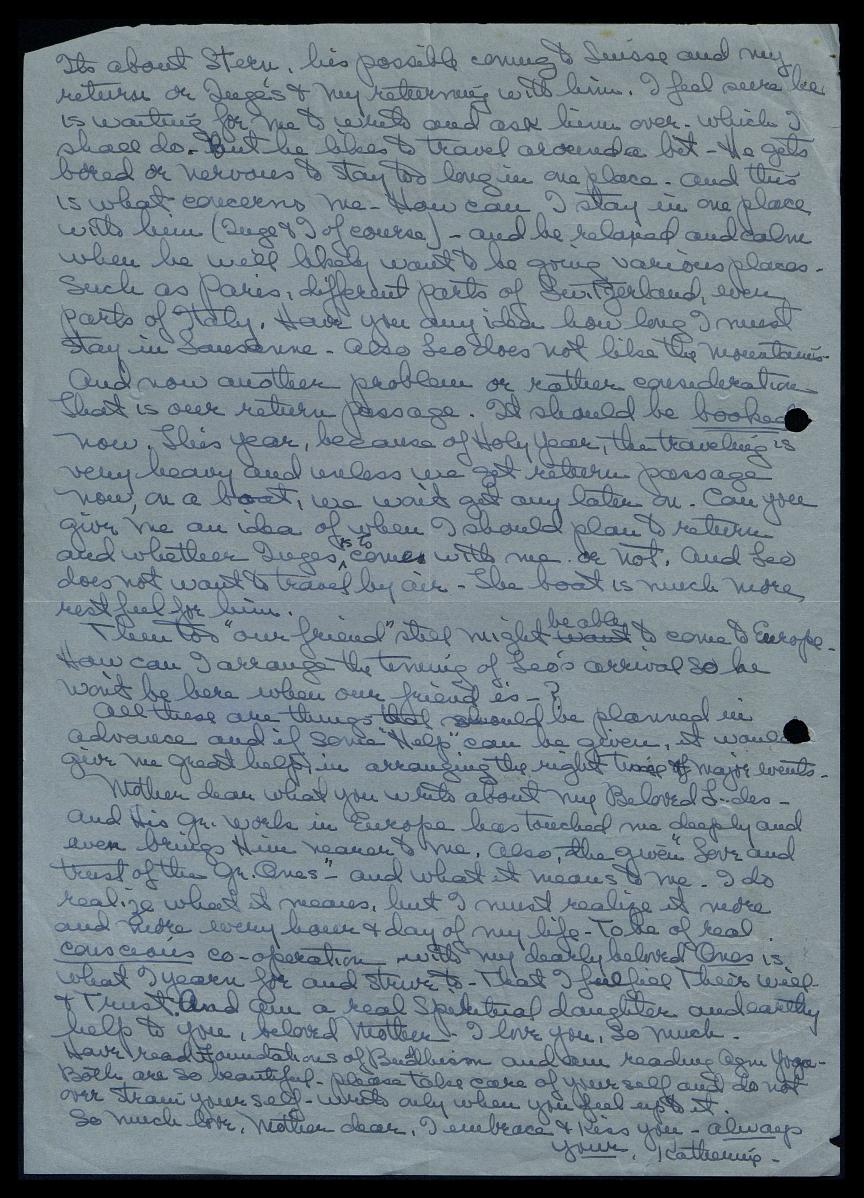 Its about Stern, his possible coming to Suisse and my
return or Inge's & my returning with him. I feel sure he
is waiting for me to write and ask him over - which I
shall do. But he likes to travel around a bit - He gets
bored or nervous to stay too long in one place - and this
is what concerns me - How can I stay in one place
with him (Inge & I of course) - and be relaxed and calm
when he will likely want to be going various places -
Such as Paris, different parts of Switzerland, even
parts of Italy. Have you any idea how long I must
stay in Lausanne - also Leo does not like the mountains -
And now another problem or rather consideration
That is our return passage. It should be booked
now. This year, because of Holy Year, the traveling is
very heavy and unless we get return passage
now, on a boat, we wont get any later on. Can you
give me an idea of when I should plan to return
and whether Inges is to comes with me or not. And Leo
does not want to travel by air - The boat is much more
restful for him.
Then too "our friend" still might be able want to come to Europe -
How can I arrange the timing of Leo's arrival so he
wont be here when our friend is - ?
All these are things that should be planned in
advance and if some "Help" can be given, it would
give me great help, in arranging the right time of major events -
Mother dear what you write about my Beloved L..des -
and His Gr. work in Europe has touched me deeply and
even brings Him nearer to me. Also, the given "Love and
trust of the Gr. Ones" - and what it means to me - I do
realize what it means, but I must realize it more
and more every hour & day of my life - To be of real
conscious co-operation with my dearly beloved Ones is
what I yearn for and strive to - That I fulfill Their will
& Trust. And am a real Spiritual daughter and earthly
help to you, beloved Mother - I love you, so much -
Have read Foundations of Buddhism and am reading Agni Yoga -
Both are so beautiful - please take care of yourself and do not
over strain yourself - write only when you feel up to it.
So much love, Mother dear, I embrace & kiss you - always
your, Katherine -